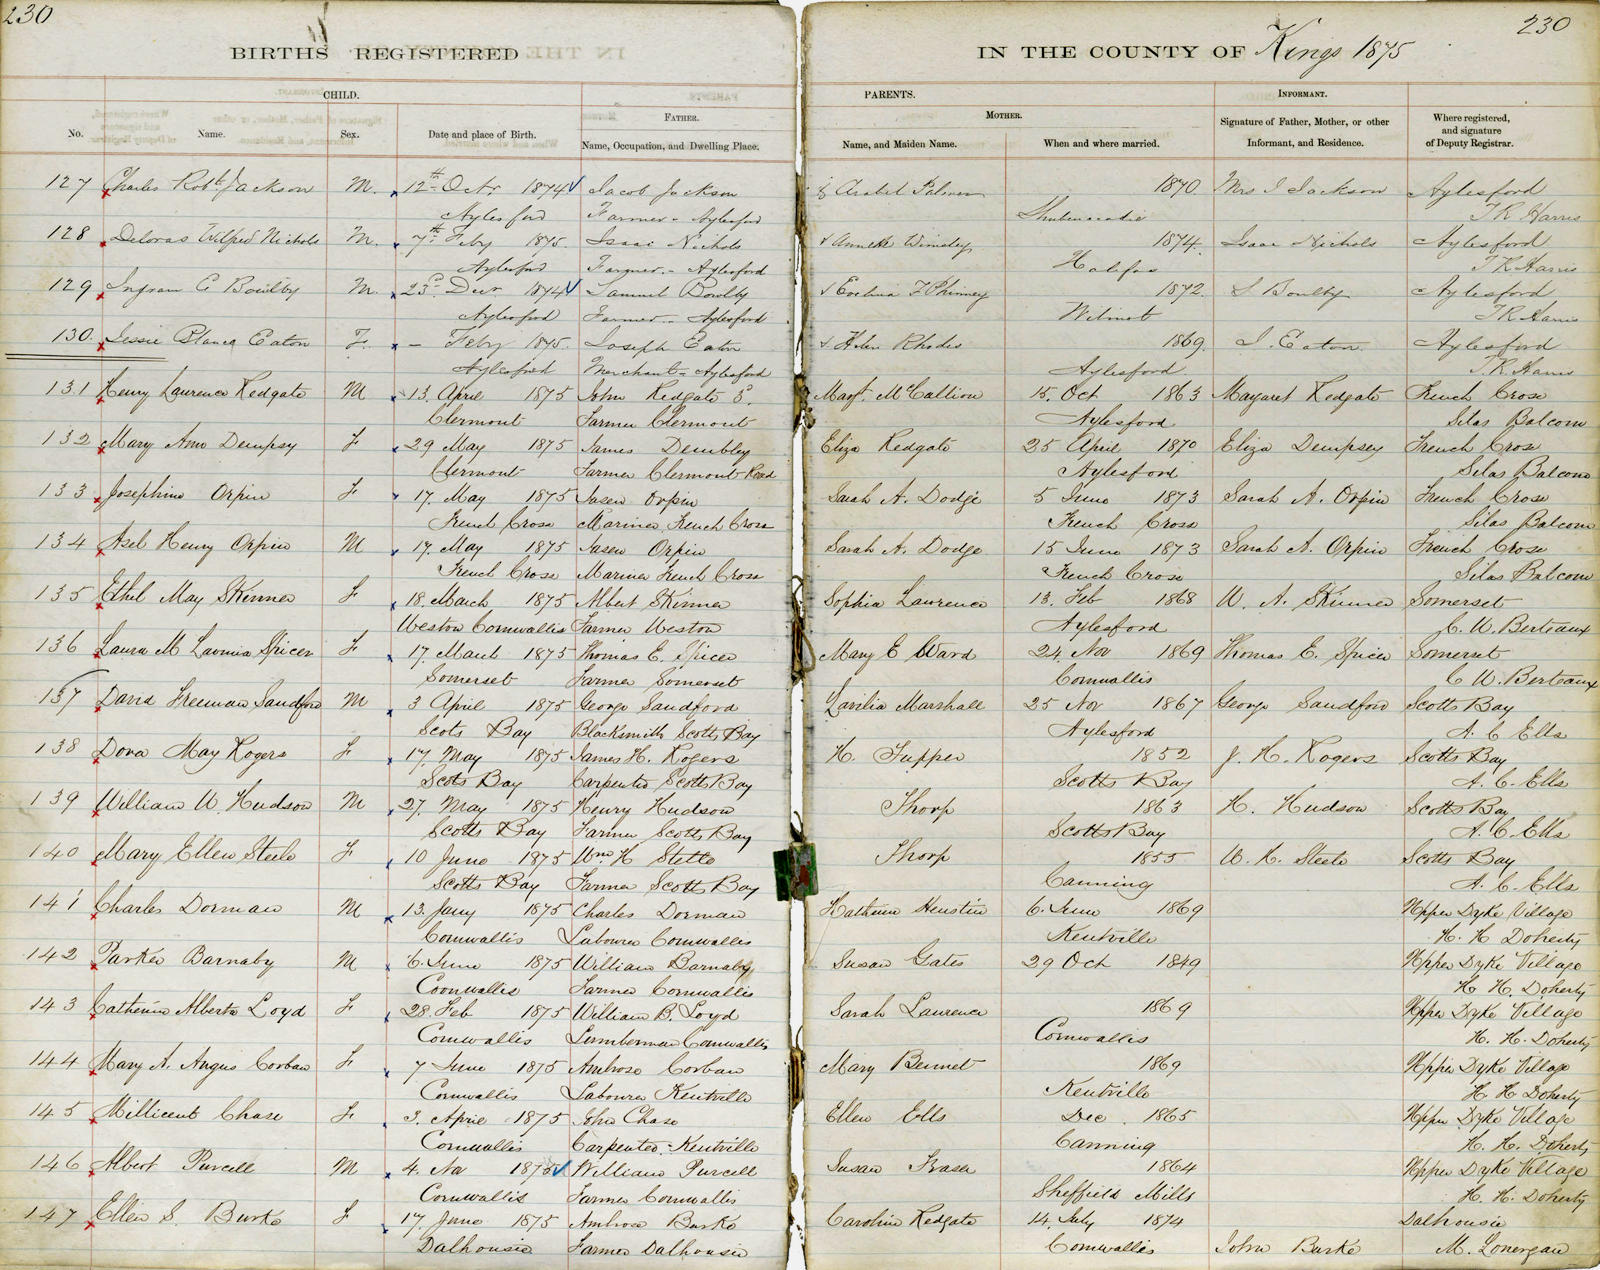 230
BIRTHS REGISTERED
IN THE COUNTY OF Kings 1875
230
CHILD.
PARENTS.
INFORMANT.
FATHER.
MOTHER.
No. Name. Sex. Date and place of Birth. Name, Occupation, and Dwelling Place. Name, and Maiden Name. When and where married. Signature of Father, Mother, or other Informant, and Residence. Where registered, and signature of Deputy Registrar.
127 Charles Robt Jackson M. 12th Octr 1874 Jacob Jackson & Arabel 1870 Mrs J Jackson Aylesford
Aylesford Farmer - Aylesford Shubenacadie T R Harris
128 Deloras Wilfred Nichols M. 7th Feby 1875. Isaac Nichols & Annetta 1874. Isaac Nichols Aylesford
Aylesford Farmer - Aylesford Halifax T R Harris
129 Ingram C Bowlby M. 23d Decr 1874 Samuel Bowlby & F Phinney 1872. S Bowlby Aylesford
Aylesford Farmer - Aylesford Wilmot T R Harris
130. Jessie Blanch Eaton F. - Feby 1875. Joseph Eaton & Helen Rhodes 1869. J. Eaton Aylesford
Aylesford Merchant - Aylesford Aylesford T. R. Harris
131 Henry Laurence Redgate M 13. April 1875 John Redgate S. Margt. McCallion 15. Oct 1863 Margaret Redgate French Cross
Clermont Farmer Clermont Aylesford Silas Balcom
132 Mary Ann Dempsy F 29 May 1875 James Dembley Eliza Redgate 25 April 1870 Eliza Dempsey French Cross
Clermont Farmer Clermont Road Aylesford Silas Balcom
133 Josephine Orpin F 17. May 1875 Jasen Orpin Sarah A. Dodge 5 June 1873 Sarah A. Orpin French Cross
French Cross Mariner French Cross French Cross Silas Balcom
134 Asel Henry Orpin M 17. May 1875 Jasen Orpin Sarah A. Dodge 15 June 1873 Sarah A. Orpin French Cross
French Cross Mariner French Cross French Cross Silas Balcom
135 Ethel May Skinner F 18. March 1875 Albert Skinner Sophia Laurence 13. Feb 1868 W. A. Skinner Somerset
Weston Cornwallis Farmer Weston Aylesford C. W. Berteaux
136 Laura M Lavinia Spicer F 17. March 1875 Thomas E. Spicer Mary E Ward 24. Nov 1869 Thomas E. Spicer Somerset
Somerset Farmer Somerset Cornwallis C W. Berteaux
137 David Freeman Sandford M 3 April 1875 George Sandford Marshall 25 Nov 1867 George Sandford Scotts Bay
Scots Bay Blacksmith Scotts Bay Aylesford A. C Ells
138 Dora May Rogers F 17. May 1875 James H. Rogers H. Tupper 1852 J. H. Rogers Scotts Bay
Scots Bay Carpenter Scotts Bay Scotts Bay A. C. Ells
139 William W. Hudson M 27. May 1875 Henry Hudson Thorp 1863 H. Hudson Scotts Bay
Scotts Bay Farmer Scotts Bay Scotts Bay A. C. Ells
140 Mary Ellen Steele F 10 June 1875 Wm H Stelle Thorp 1855 W. H. Steele Scotts Bay
Scotts Bay Farmer Scott Bay Canning A. C. Ells
141 Charles Dorman M 13. Jany 1875 Charles Dorman Katherin 6. June 1869 Upper Dyke Village
Cornwallis Labourer Cornwallis Kentville H. H Doherty
142 Parker Barnaby M 6. June 1875 William Barnaby Susan Gates 29 Oct 1849 Upper Dyke Village
Cornwallis Farmer Cornwallis H H. Doherty
143 Catherin Alberta Loyd F 28. Feb 1875 William B. Loyd Sarah Laurence 1869 Upper Dyke Village
Cornwallis Lumberman Cornwallis Cornwallis H. H. Doherty
144 Mary A. Angus Corban F 7 June 1875 Ambrose Corban Mary Bennet 1869 Upper Dyke Village
Cornwallis Labourer Kentville Kentville H H Doherty
145 Millicent Chase F 3. April 1875 John Chase Ellen Ells Dec. 1865 Upper Dyke Village
Cornwallis Carpenter - Kentville Canning H. H. Doherty
146 Albert Purcell M 4. Nov 1875 William Purcell Susan Fraser 1864 Upper Dyke Village
Cornwallis Farmer Cornwallis Sheffield Mills H. H. Doherty
147 Ellen S. Burke F 17. June 1875 Ambrose Burke Caroline Redgate 14. July 1874 Dalhousie
Dalhousie Farmer Dalhousie Cornwallis John Burke M. Lonergan